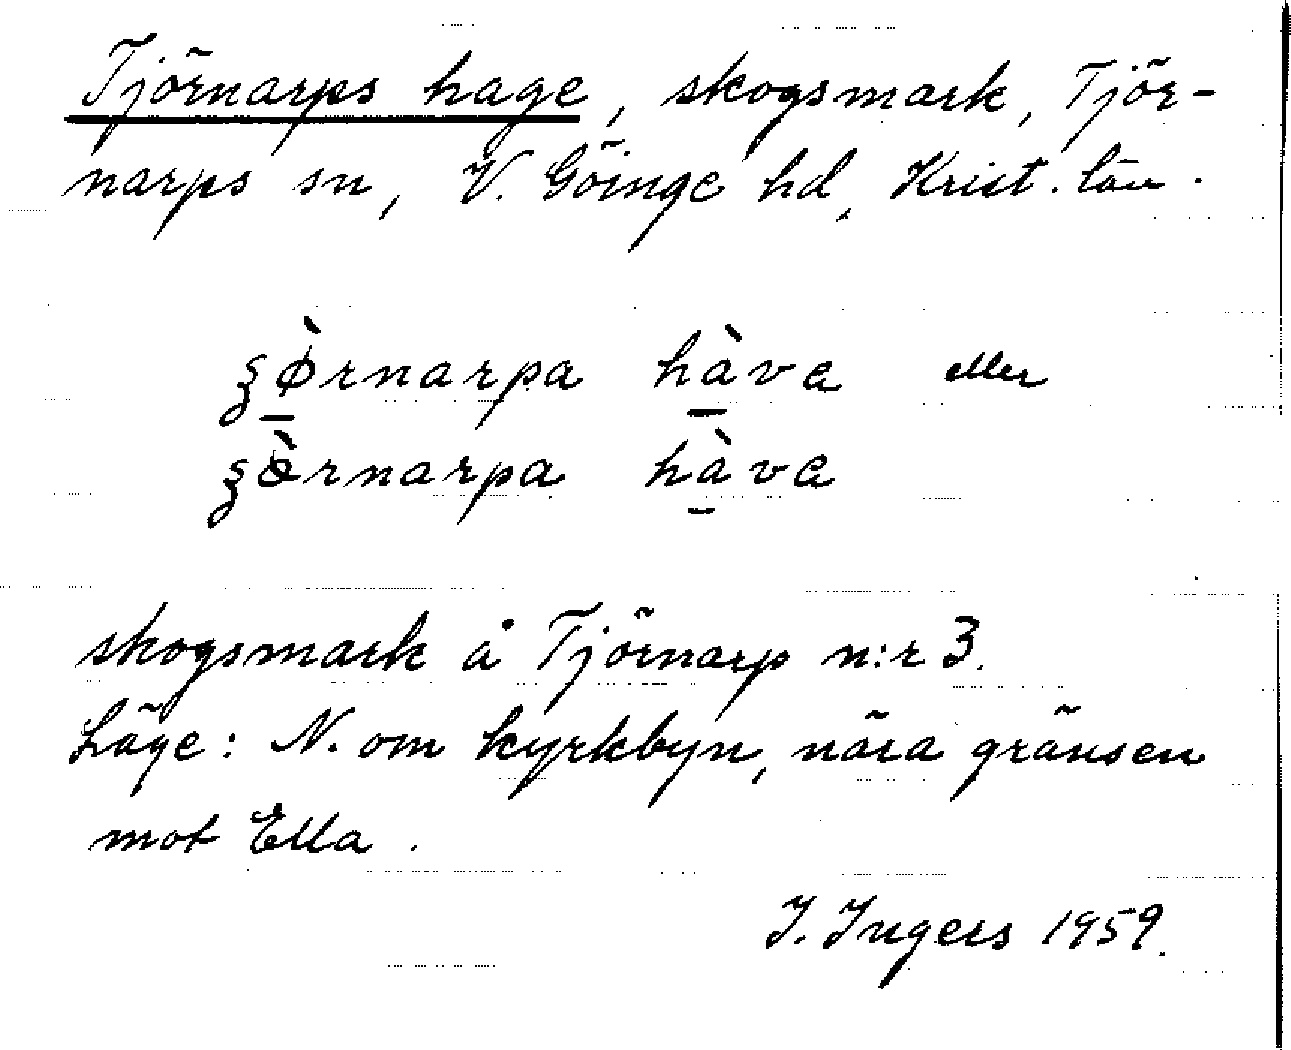 Tjörnarps hage, skogsmark, Tjör-
narps sn, V. Göinge hd, Krist. län.
ʒø̀rnarpa hàva eller
ʒæ̀rnarpa hàva
skogsmark å Tjörnarp n:r 3.
Läge: N. om kyrkbyn, nära gränsen
mot Ella.
I. Ingers 1959.